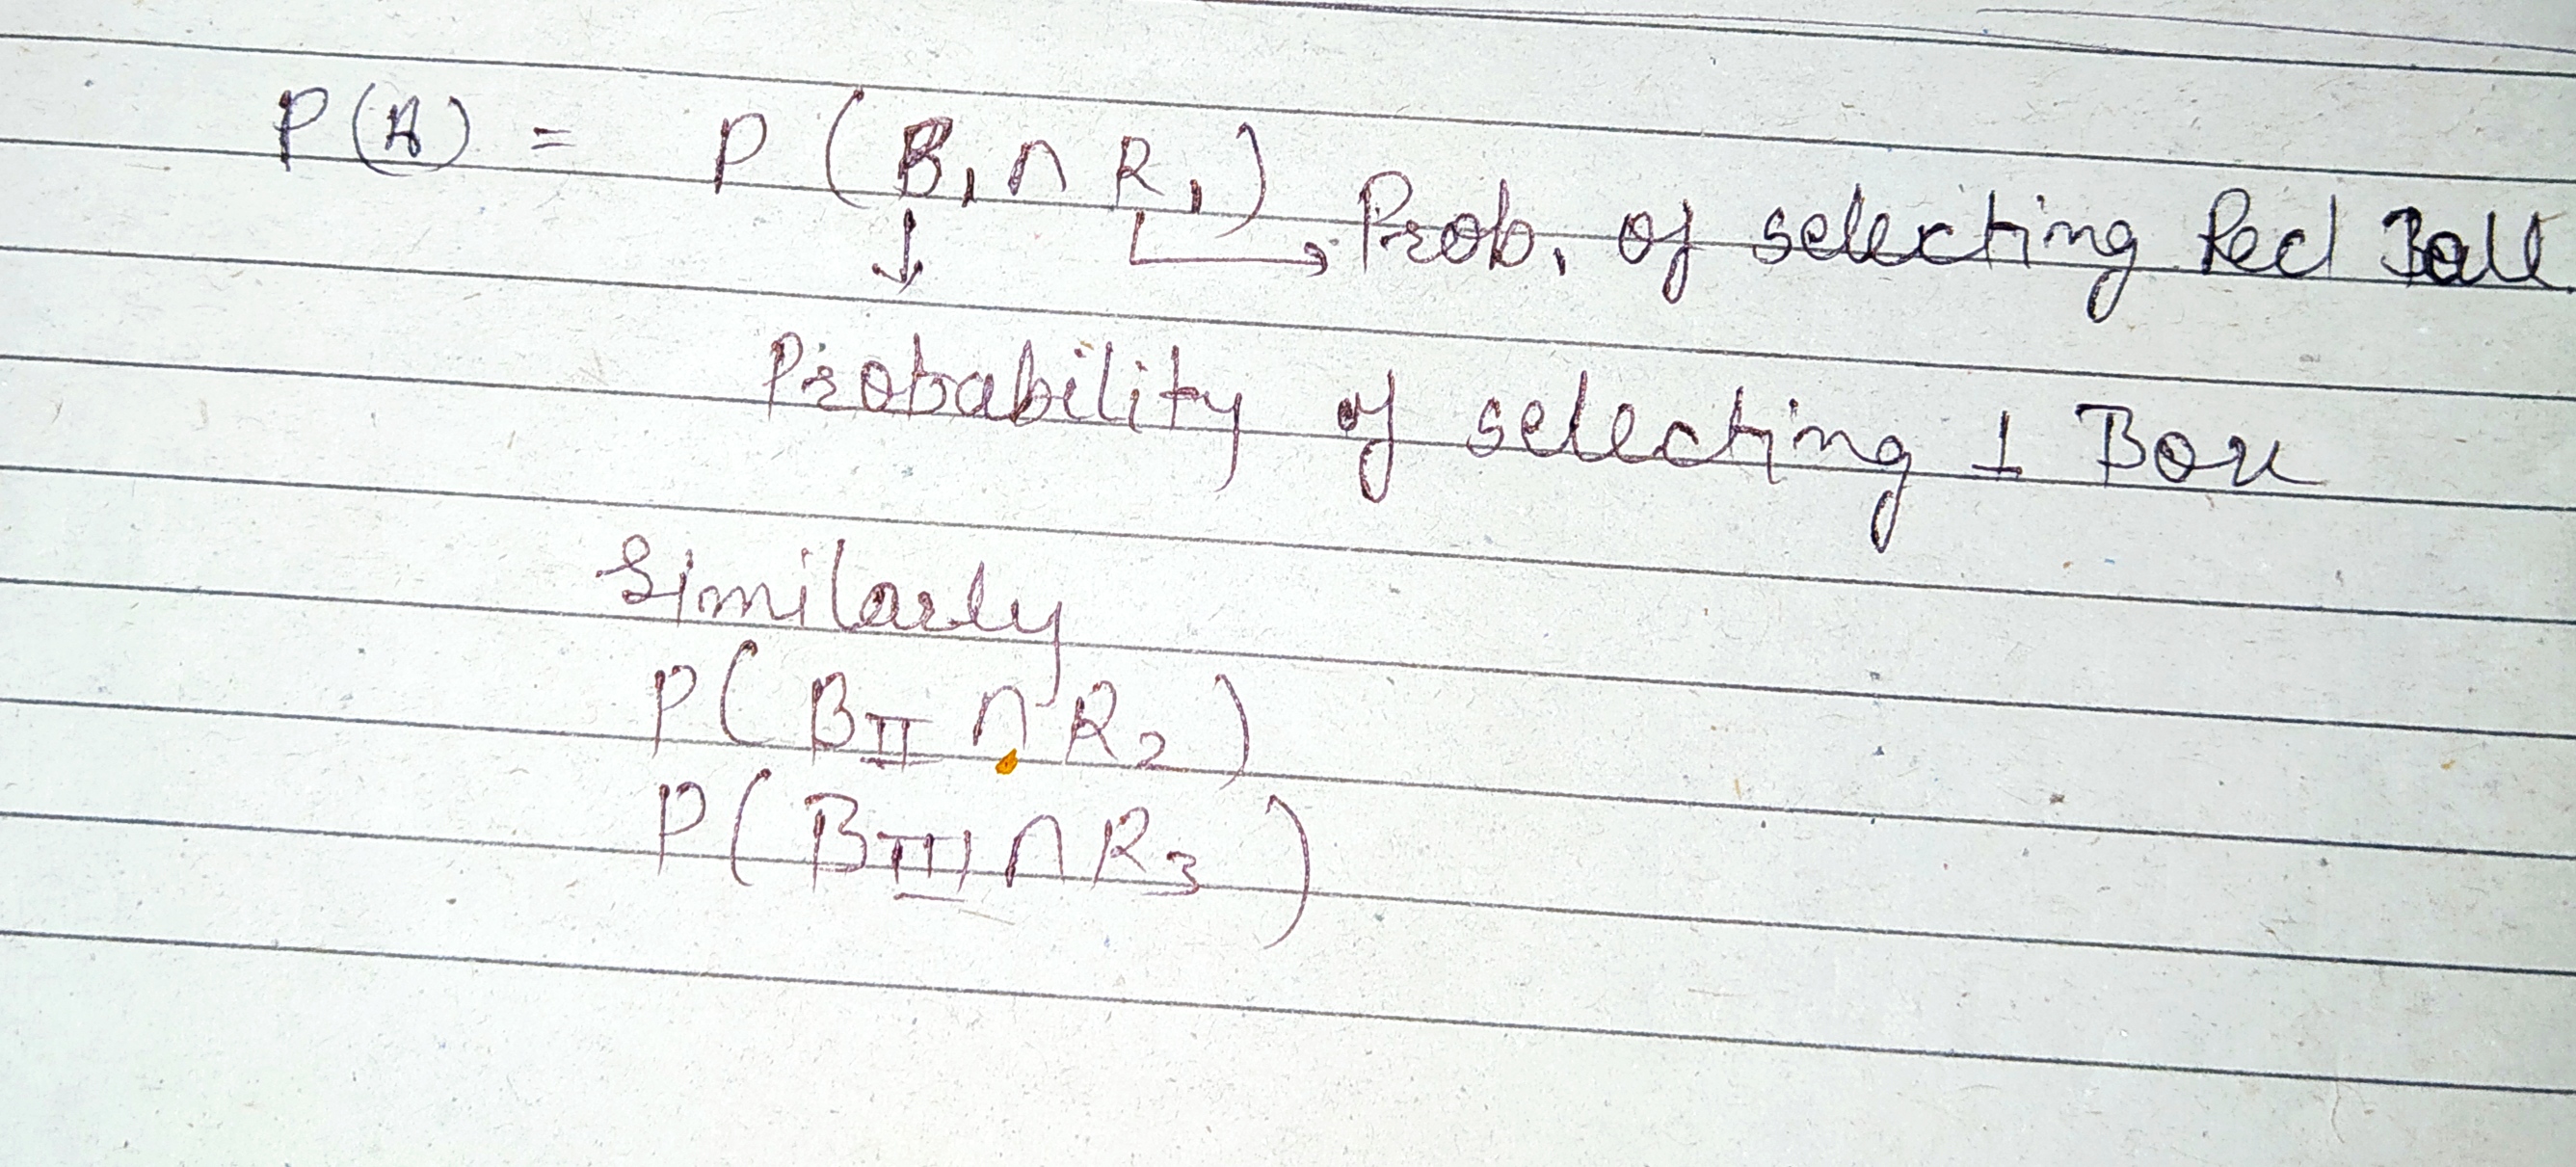 P(A) = P (B₁ ∩ R₁)
↓ → Prob. of selecting Red Ball
Probability of selecting 1 Box
Similarly
P( B_II ∩ R₂ )
P( B_III ∩ R₃ )